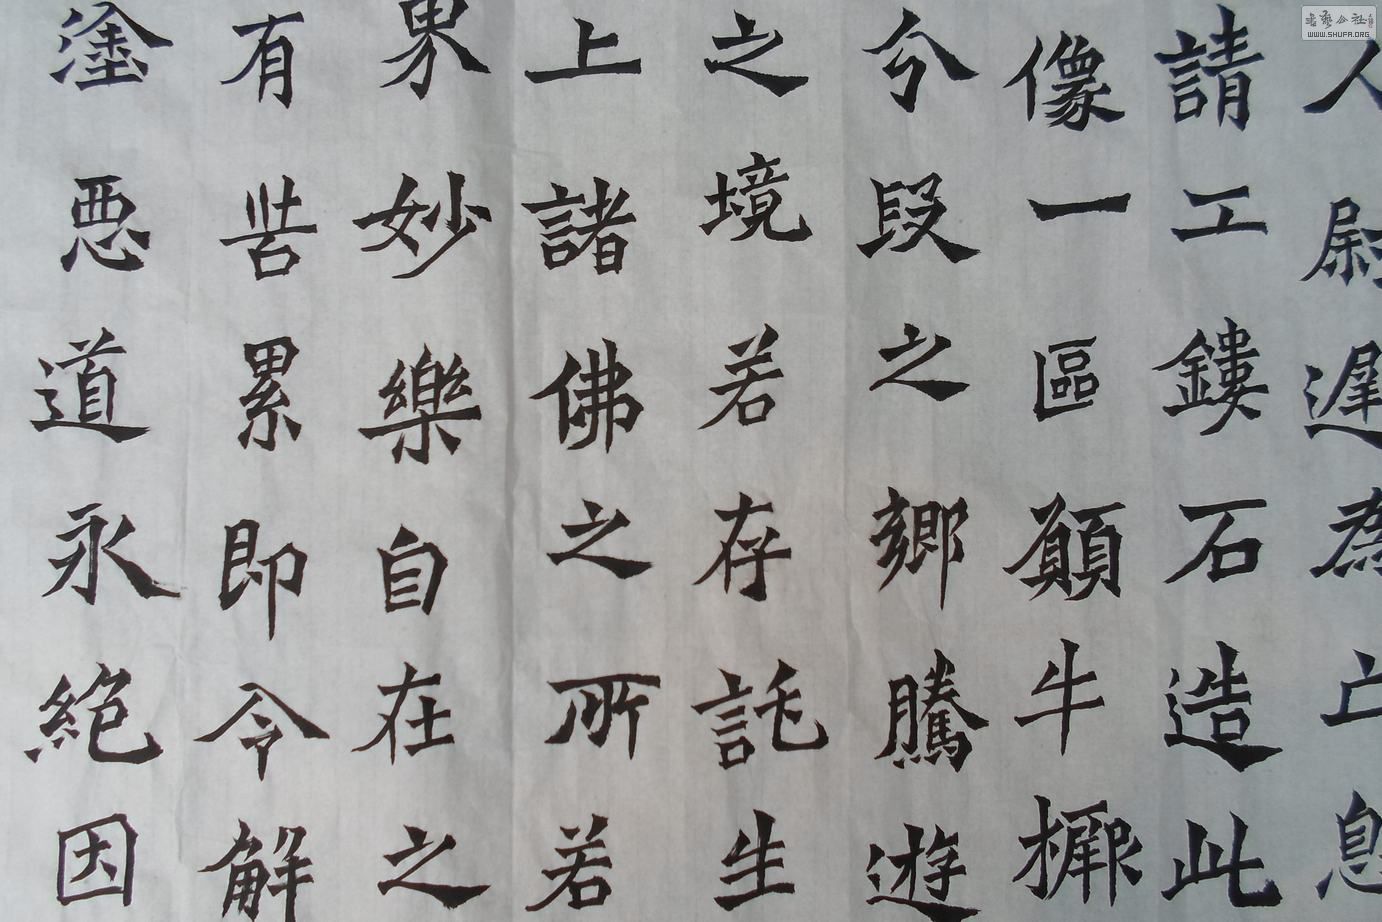 人尉遲為亡息
請工鏤石造此
像一區願牛橛
分段之鄉騰遊
之境若存託生
上諸佛之所若
界妙樂自在之
有苦累即令解
塗惡道永絶因
书艺公社
WWW.SHUFA.ORG